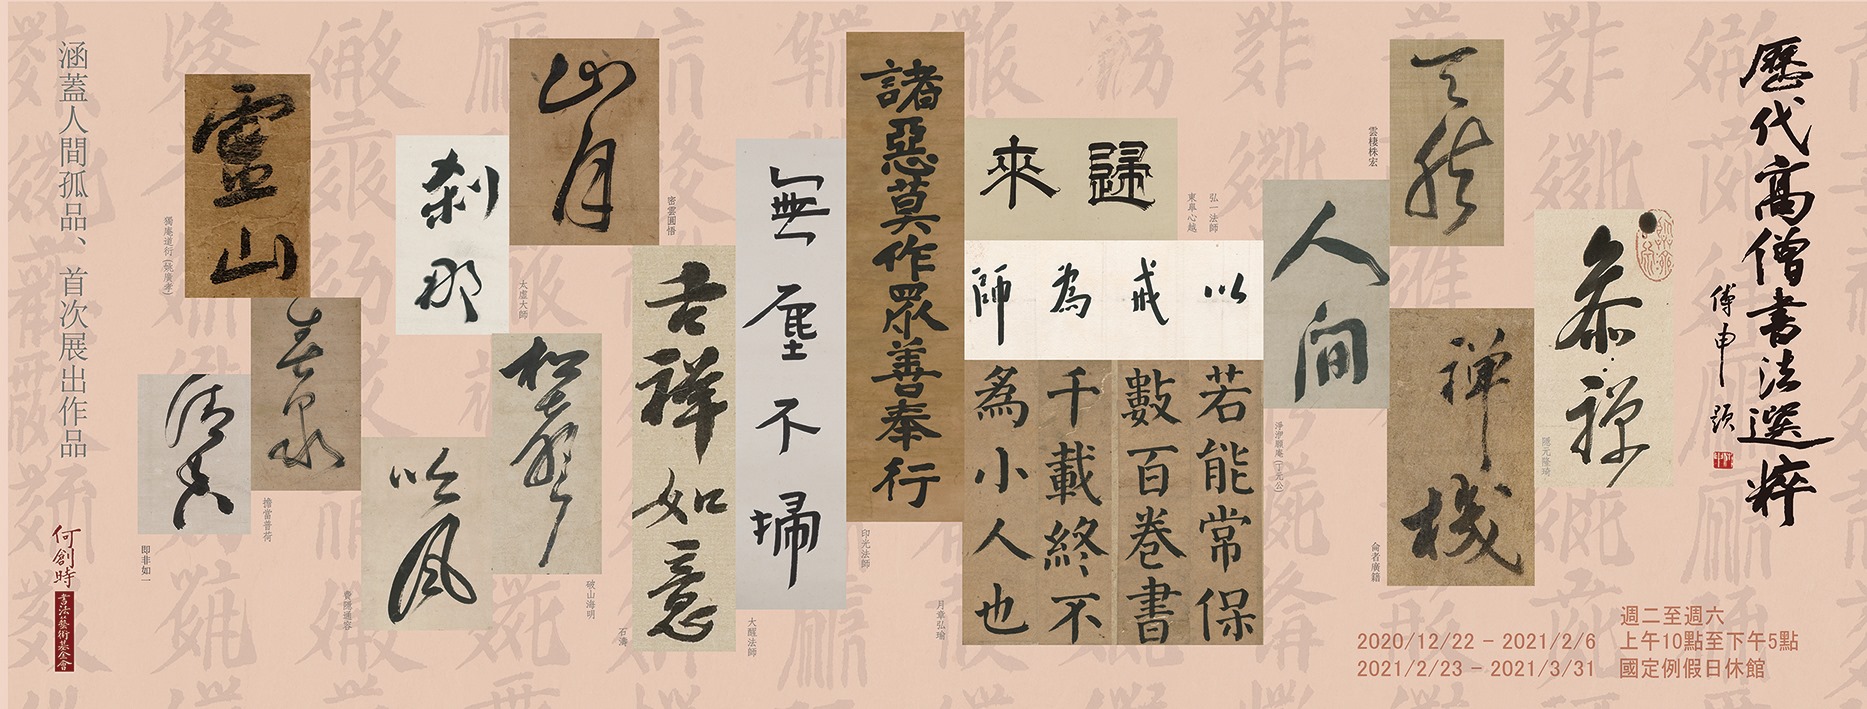 歷代高僧書法選粹
傅申題
參禪
隱元隆琦
天然
雲棲袾宏
禅機
俞者廣籍
人间
淨泖願庵(丁元公)
歸來
東皋心越
弘一法師
以戒為師
若能常保
數百卷書
千載終不
為小人也
月章弘瑜
諸惡莫作眾善奉行
印光法師
無塵不掃
大醒法師
吉祥如意
石濤
山月
密雲圓悟
松聲
破山海明
剎那
太虛大師
吟風
費隱通容
靈山
獨庵道衍(姚廣孝)
春泉
擔當普荷
即非如一
涵蓋人間孤品、首次展出作品
何創時
書法藝術基金會
週二至週六
2020/12/22 – 2021/2/6 上午10點至下午5點
2021/2/23 – 2021/3/31 國定例假日休館